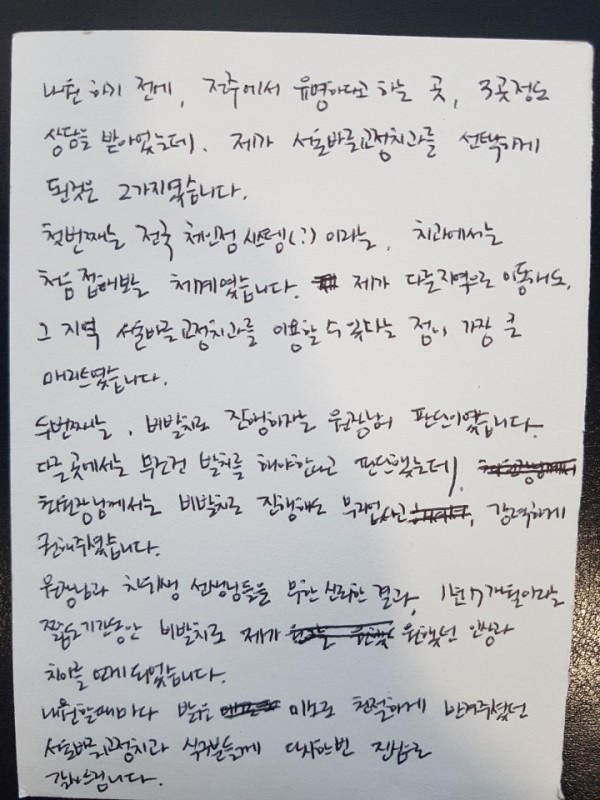 내원 하기 전에, 전주에서 유명하다고 하는 곳, 3곳정도
상담을 받아었는데, 제가 서울바른교정치과를 선택하게
된것은 2가지였습니다.
첫번째는 전국 체인점 시스템(?) 이라는, 치과에서는
처음 접해보는 체계였습니다. 제가 다른지역으로 이동해도,
그 지역 서울바른교정치과를 이용할 수 있다는 점이 가장 큰
매리트였습니다.
두번째는, 비발치로 진행하자는 원장님의 판단이였습니다.
다른 곳에서는 무조건 발치를 해야한다고 판단했는데,
원장님께서는 비발치로 진행해도 무리없다고, 강력하게
권해주셨습니다.
원장님과 치위생 선생님들을 무한 신뢰한 결과, 1년 7개월이라는
짧은기간동안 비발치로 제가 원했던 인상과
치아를 얻게 되었습니다.
내원할때마다 밝은 미소로 친절하게 반겨주셨던
서울바른교정치과 식구분들께 다시한번 진심으로
감사드립니다.